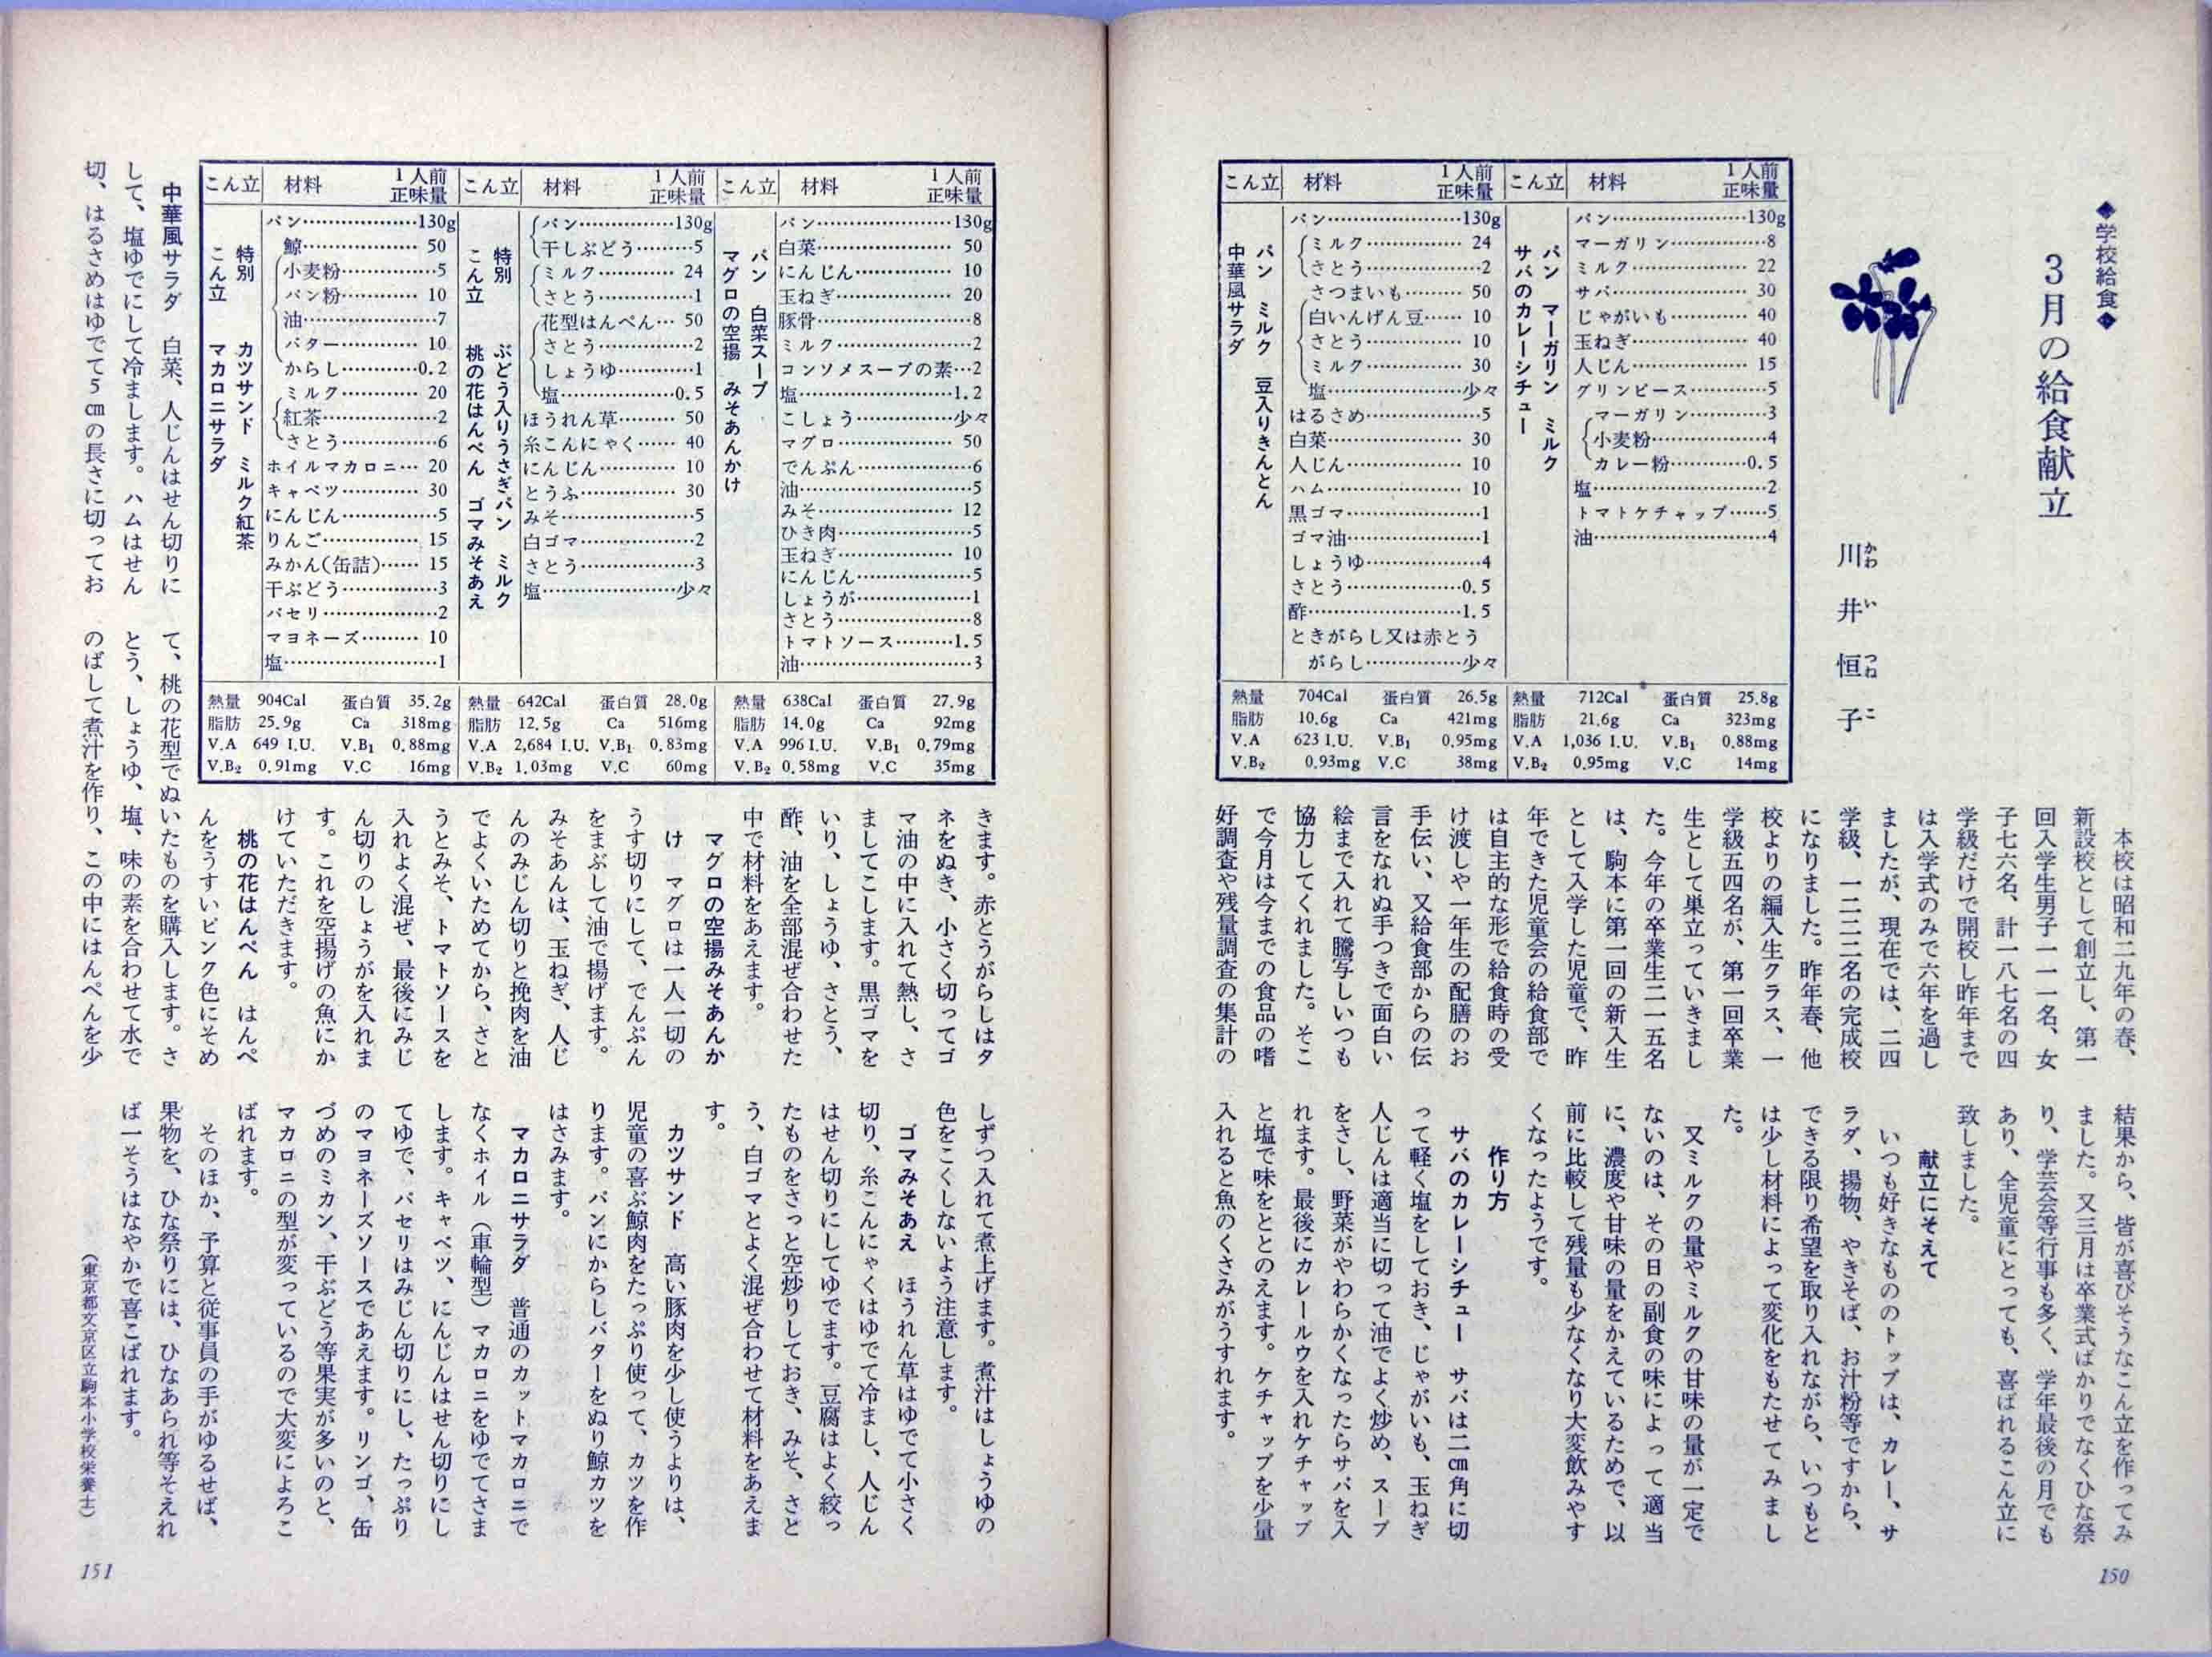 ◆学校給食◆
3月の給食献立
川井恒子
かわいつねこ
こん立 材料 1人前正味量
パン マーガリン ミルク
サバのカレーシチュー
パン……130g
マーガリン……8
ミルク……22
サバ……30
じゃがいも……40
玉ねぎ……40
人じん……15
グリンピース……5
マーガリン……3
小麦粉……4
カレー粉……0.5
塩……2
トマトケチャップ……5
油……4
熱量 712Cal 蛋白質 25.8g
脂肪 21.6g Ca 323mg
V.A 1,036 I.U. V.B₁ 0.88mg
V.B₂ 0.95mg V.C 14mg
こん立 材料 1人前正味量
パン ミルク 豆入りきんとん
中華風サラダ
パン……130g
ミルク……24
さとう……2
さつまいも……50
白いんげん豆……10
さとう……10
ミルク……30
塩……少々
はるさめ……5
白菜……30
人じん……10
ハム……10
黒ゴマ……1
ゴマ油……1
しょうゆ……4
さとう……0.5
酢……1.5
ときがらし又は赤とう
がらし……少々
熱量 704Cal 蛋白質 26.5g
脂肪 10.6g Ca 421mg
V.A 623 I.U. V.B₁ 0.95mg
V.B₂ 0.93mg V.C 38mg
本校は昭和二九年の春、
新設校として創立し、第一
回入学生男子一一一名、女
子七六名、計一八七名の四
学級だけで開校し昨年まで
は入学式のみで六年を過し
ましたが、現在では、二四
学級、一二二二名の完成校
になりました。昨年春、他
校よりの編入生クラス、一
学級五四名が、第一回卒業
生として巣立っていきまし
た。今年の卒業生二一五名
は、駒本に第一回の新入生
として入学した児童で、昨
年できた児童会の給食部で
は自主的な形で給食時の受
け渡しや一年生の配膳のお
手伝い、又給食部からの伝
言をなれぬ手つきで面白い
絵まで入れて騰写しいつも
協力してくれました。そこ
で今月は今までの食品の嗜
好調査や残量調査の集計の
結果から、皆が喜びそうなこん立を作ってみ
ました。又三月は卒業式ばかりでなくひな祭
り、学芸会等行事も多く、学年最後の月でも
あり、全児童にとっても、喜ばれるこん立に
致しました。
献立にそえて
いつも好きなもののトップは、カレー、サ
ラダ、揚物、やきそば、お汁粉等ですから、
できる限り希望を取り入れながら、いつもと
は少し材料によって変化をもたせてみまし
た。
又ミルクの量やミルクの甘味の量が一定で
ないのは、その日の副食の味によって適当
に、濃度や甘味の量をかえているためで、以
前に比較して残量も少なくなり大変飲みやす
くなったようです。
作り方
サバのカレーシチュー サバは二㎝角に切
って軽く塩をしておき、じゃがいも、玉ねぎ
人じんは適当に切って油でよく炒め、スープ
をさし、野菜がやわらかくなったらサバを入
れます。最後にカレールウを入れケチャップ
と塩で味をととのえます。ケチャップを少量
入れると魚のくさみがうすれます。
150
こん立 材料 1人前正味量
パン 白菜スープ
マグロの空揚 みそあんかけ
パン……130g
白菜……50
にんじん……10
玉ねぎ……20
豚骨……8
ミルク……2
コンソメスープの素…2
塩……1.2
こしょう……少々
マグロ……50
でんぷん……6
油……5
みそ……12
ひき肉……5
玉ねぎ……10
にんじん……5
しょうが……1
さとう……8
トマトソース……1.5
油……3
熱量 638Cal 蛋白質 27.9g
脂肪 14.0g Ca 92mg
V.A 996 I.U. V.B₁ 0.79mg
V.B₂ 0.58mg V.C 35mg
こん立 材料 1人前正味量
特別こん立
ぶどう入りうさぎパン ミルク
桃の花はんぺん ゴマみそあえ
パン……130g
干しぶどう……5
ミルク……24
さとう……1
花型はんぺん…50
さとう……2
しょうゆ……1
塩……0.5
ほうれん草……50
糸こんにゃく……40
にんじん……10
とうふ……30
みそ……5
白ゴマ……2
さとう……3
塩……少々
熱量 642Cal 蛋白質 28.0g
脂肪 12.5g Ca 516mg
V.A 2,684 I.U. V.B₁ 0.83mg
V.B₂ 1.03mg V.C 60mg
こん立 材料 1人前正味量
特別こん立
カツサンド ミルク紅茶
マカロニサラダ
パン……130g
鯨……50
小麦粉……5
パン粉……10
油……7
バター……10
からし……0.2
ミルク……20
紅茶……2
さとう……6
ホイルマカロニ…20
キャベツ……30
にんじん……5
りんご……15
みかん(缶詰)……15
干ぶどう……3
パセリ……2
マヨネーズ……10
塩……1
熱量 904Cal 蛋白質 35.2g
脂肪 25.9g Ca 318mg
V.A 649 I.U. V.B₁ 0.88mg
V.B₂ 0.91mg V.C 16mg
中華風サラダ 白菜、人じんはせん切りに
して、塩ゆでにして冷まします。ハムはせん
切、はるさめはゆでて5㎝の長さに切ってお
きます。赤とうがらしはタ
ネをぬき、小さく切ってゴ
マ油の中に入れて熱し、さ
ましてこします。黒ゴマを
いり、しょうゆ、さとう、
酢、油を全部混ぜ合わせた
中で材料をあえます。
マグロの空揚みそあんか
け マグロは一人一切の
うす切りにして、でんぷん
をまぶして油で揚げます。
みそあんは、玉ねぎ、人じ
んのみじん切りと挽肉を油
でよくいためてから、さと
うとみそ、トマトソースを
入れよく混ぜ、最後にみじ
ん切りのしょうがを入れま
す。これを空揚げの魚にか
けていただきます。
桃の花はんぺん はんぺ
んをうすいピンク色にそめ
て、桃の花型でぬいたものを購入します。さ
とう、しょうゆ、塩、味の素を合わせて水で
のばして煮汁を作り、この中にはんぺんを少
しずつ入れて煮上げます。煮汁はしょうゆの
色をこくしないよう注意します。
ゴマみそあえ ほうれん草はゆでて小さく
切り、糸こんにゃくはゆでて冷まし、人じん
はせん切りにしてゆでます。豆腐はよく絞っ
たものをさっと空炒りしておき、みそ、さと
う、白ゴマとよく混ぜ合わせて材料をあえま
す。
カツサンド 高い豚肉を少し使うよりは、
児童の喜ぶ鯨肉をたっぷり使って、カツを作
ります。パンにからしバターをぬり鯨カツを
はさみます。
マカロニサラダ 普通のカットマカロニで
なくホイル（車輪型）マカロニをゆでてさま
します。キャベツ、にんじんはせん切りにし
てゆで、パセリはみじん切りにし、たっぷり
のマヨネーズソースであえます。リンゴ、缶
づめのミカン、干ぶどう等果実が多いのと、
マカロニの型が変っているので大変によろこ
ばれます。
そのほか、予算と従事員の手がゆるせば、
果物を、ひな祭りには、ひなあられ等そえれ
ば一そうはなやかで喜こばれます。
（東京都文京区立駒本小学校栄養士）
151